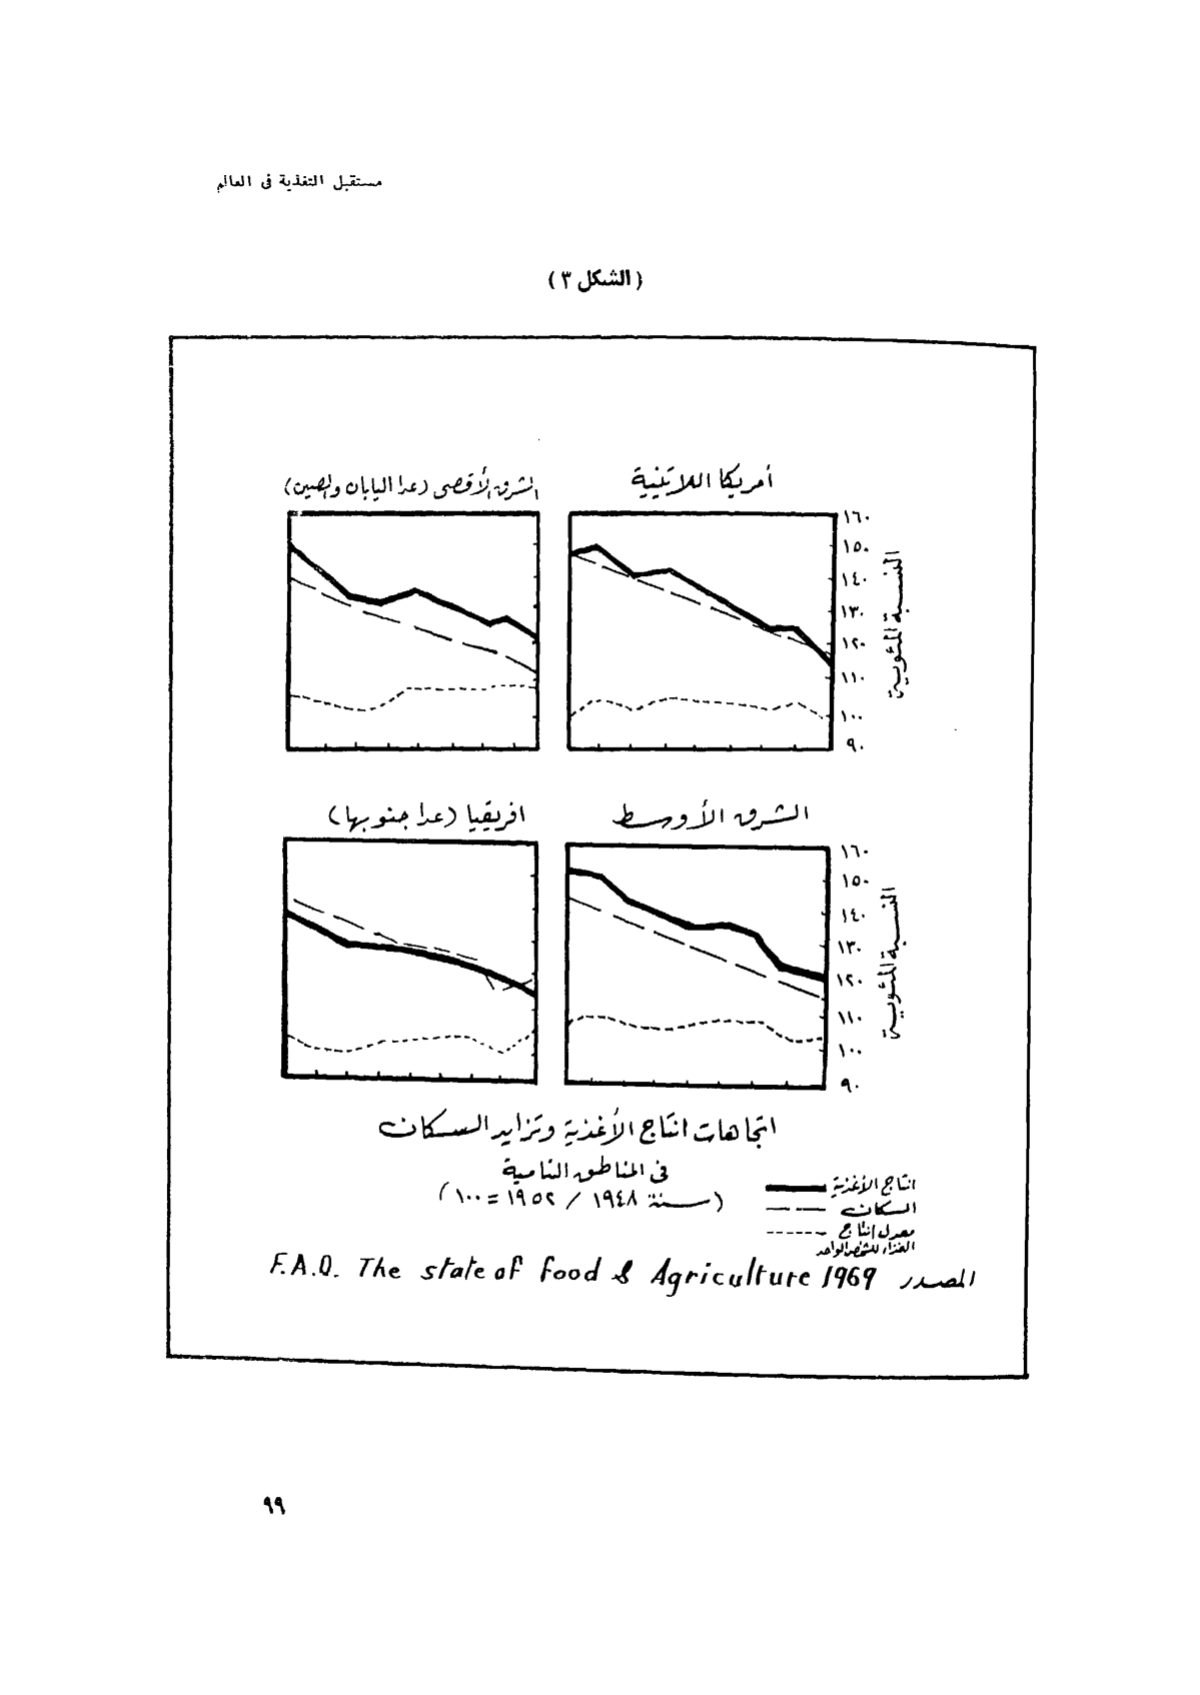 مستقبل التغذية فى العالم
( الشكل ٣ )
أمريكا اللاتينية
الشرق الأقصى (عدا اليابان والصين)
١٦٠
١٥٠
١٤٠
١٣٠
١٢٠
١١٠
١٠٠
٩٠
النسبة المئوية
الشرق الأوسط
افريقيا (عدا جنوبها)
١٦٠
١٥٠
١٤٠
١٣٠
١٢٠
١١٠
١٠٠
٩٠
النسبة المئوية
اتجاهات انتاج الأغذية وتزايد السكان
فى المناطق النامية
(سنة ١٩٤٨ / ١٩٥٢ = ١٠٠)
انتاج الأغذية
السكان
معدل إنتاج
الغذاء للشخص الواحد
المصدر F.A.O. The state of food & Agriculture 1969
٩٩